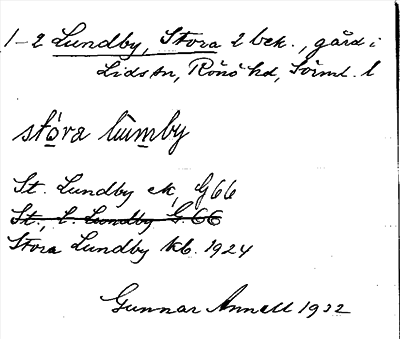 1-2 Lundby, Stora 2 bek., gård i
Lids sn, Rönö hd, Söderml. l
stω̨ra lùmby
St. Lundby ek, G66
St., L. Lundby G. 66
Stora Lundby kb. 1924
Gunnar Annell 1932